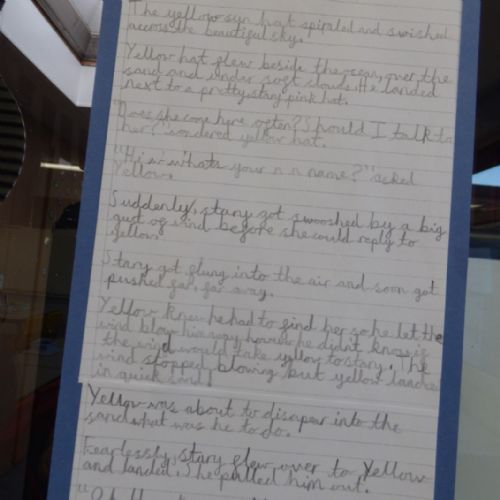 The yellow sun hat spiraled and swished
across the beautiful sky.
Yellow hat flew beside the ocean, over the
sand and under soft clouds. He landed
next to a pretty, stary pink hat.
"Does she come here often? Should I talk to
her? wondered yellow hat.
"Hi w whats your n n name?" asked
Yellow.
Suddenly, stary got swooshed by a big
gust of wind before she could reply to
yellow.
Stary got flung into the air and soon got
pushed far, far away.
Yellow knew he had to find her so he let the
wind blow him away however he didn't know if
the wind would take yellow to stary. The
wind stopped blowing but yellow landed
in quick sand!
Yellow was about to disapear into the
sand what was he to do.
Fearlessly, stary flew over to Yellow
and landed. She pulled him out.